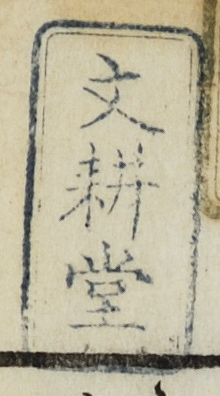 文耕堂